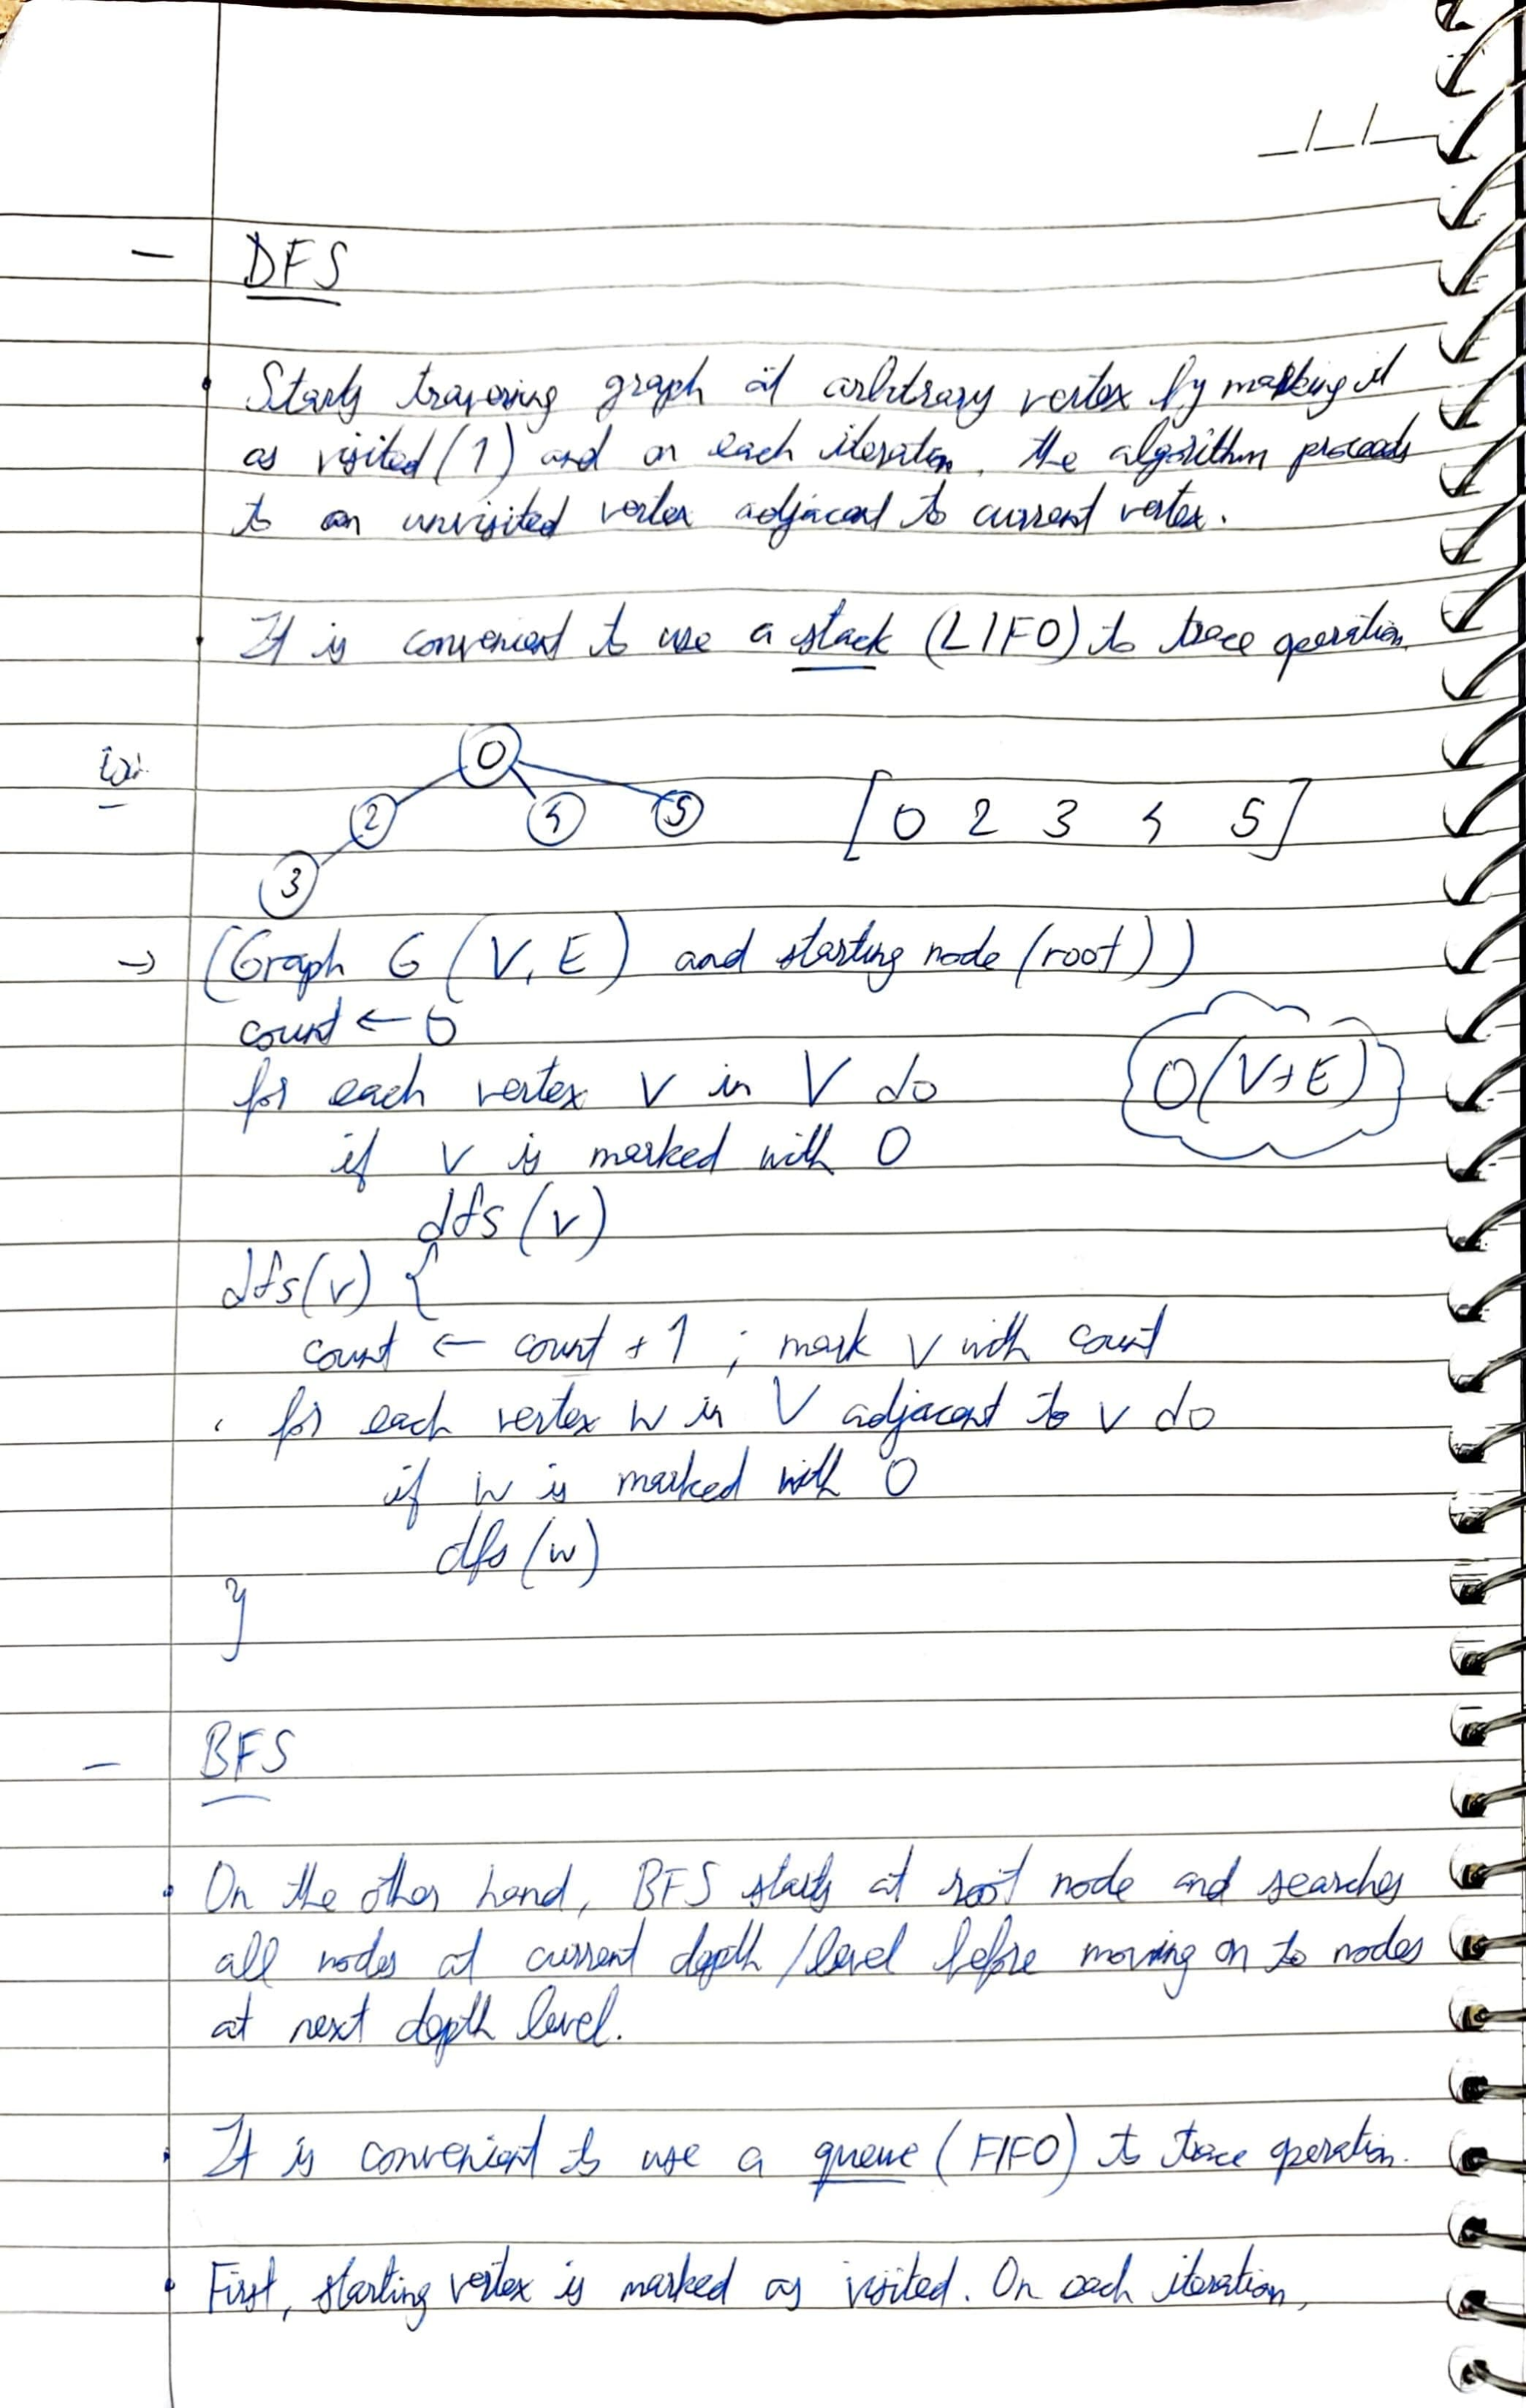 _/_/_
- DFS
• Starts traversing graph at arbitrary vertex by marking it
as visited (1) and on each iteration, the algorithm proceeds
to an unvisited vertex adjacent to current vertex.
• It is convenient to use a stack (LIFO) to trace operation.
0
2 4 5 [0 2 3 4 5]
3
→ (Graph G (V, E) and starting node (root))
count ← 0
for each vertex v in V do O(V+E)
if v is marked with 0
dfs (v)
dfs(v) {
count ← count + 1 ; mark v with count
for each vertex w in V adjacent to v do
if w is marked with 0
dfs (w)
}
- BFS
• On the other hand, BFS starts at root node and searches
all nodes at current depth / level before moving on to nodes
at next depth level.
• It is convenient to use a queue (FIFO) to trace operation.
• First, starting vertex is marked as visited. On each iteration,